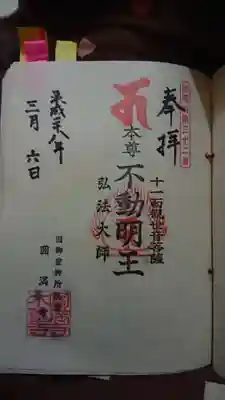 奉拝
十一面観世音菩薩
本尊
不動明王
弘法大師
圓満
平成二十八年
三月六日